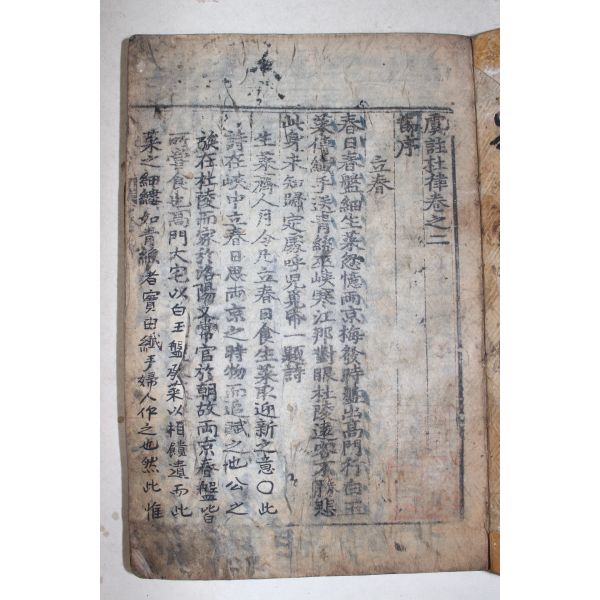 虞註杜律卷之二
時序
立春
春日春盤細生菜忽憶兩京梅發時盤出高門行白玉
菜傳纖手送青絲巫峽寒江那對眼杜陵遠客不勝悲
此身未知歸定處呼兒覓紙一題詩
生菜齊人月令凡立春日食生菜取迎新之意〇此
詩在峽中立春日思兩京之時物而追賦之也公之
族在杜陵而家於洛陽又常官於朝故兩京春盤皆
所嘗食也高門大宅以白玉盤承采以相饋遺而此
菜之細縷如青絲者實由纖手婦人作之也然此惟